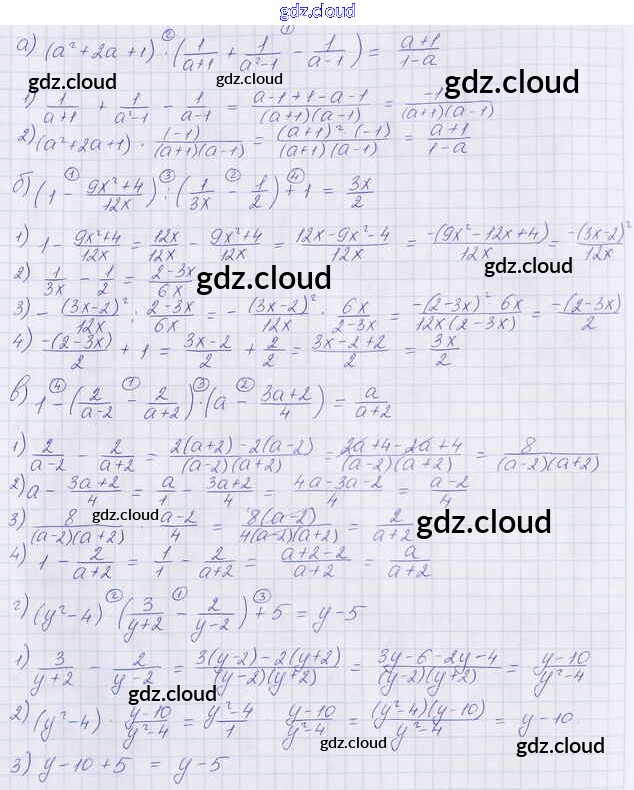 gdz.cloud
а) (a²+2a+1)·(1/(a+1) + 1/(a²-1) - 1/(a-1)) = (a+1)/(1-a)
gdz.cloud gdz.cloud gdz.cloud
1) 1/(a+1) + 1/(a²-1) - 1/(a-1) = (a-1+1-a-1)/((a+1)(a-1)) = -1/((a+1)(a-1))
2) (a²+2a+1) · (-1)/((a+1)(a-1)) = ((a+1)²(-1))/((a+1)(a-1)) = (a+1)/(1-a)
б) (1 - (9x²+4)/12x) : (1/3x - 1/2) + 1 = 3x/2
1) 1 - (9x²+4)/12x = 12x/12x - (9x²+4)/12x = (12x-9x²-4)/12x = -(9x²-12x+4)/12x = -(3x-2)²/12x
2) 1/3x - 1/2 = (2-3x)/6x
gdz.cloud gdz.cloud
3) -(3x-2)²/12x : (2-3x)/6x = -(3x-2)²/12x · 6x/(2-3x) = (-(2-3x)² 6x)/(12x(2-3x)) = -(2-3x)/2
4) -(2-3x)/2 + 1 = (3x-2)/2 + 2/2 = (3x-2+2)/2 = 3x/2
в) 1 - (2/(a-2) - 2/(a+2))·(a - (3a+2)/4) = a/(a+2)
1) 2/(a-2) - 2/(a+2) = (2(a+2)-2(a-2))/((a-2)(a+2)) = (2a+4-2a+4)/((a-2)(a+2)) = 8/((a-2)(a+2))
2) a - (3a+2)/4 = a/1 - (3a+2)/4 = (4a-3a-2)/4 = (a-2)/4
gdz.cloud gdz.cloud
3) 8/((a-2)(a+2)) · (a-2)/4 = 8(a-2)/(4(a-2)(a+2)) = 2/(a+2)
4) 1 - 2/(a+2) = 1/1 - 2/(a+2) = (a+2-2)/(a+2) = a/(a+2)
г) (y²-4) (3/(y+2) - 2/(y-2)) + 5 = y-5
1) 3/(y+2) - 2/(y-2) = (3(y-2)-2(y+2))/((y-2)(y+2)) = (3y-6-2y-4)/((y-2)(y+2)) = (y-10)/(y²-4)
gdz.cloud
2) (y²-4) · (y-10)/(y²-4) = (y²-4)/1 · (y-10)/(y²-4) = ((y²-4)(y-10))/(y²-4) = y-10
gdz.cloud gdz.cloud
3) y-10+5 = y-5
gdz.cloud